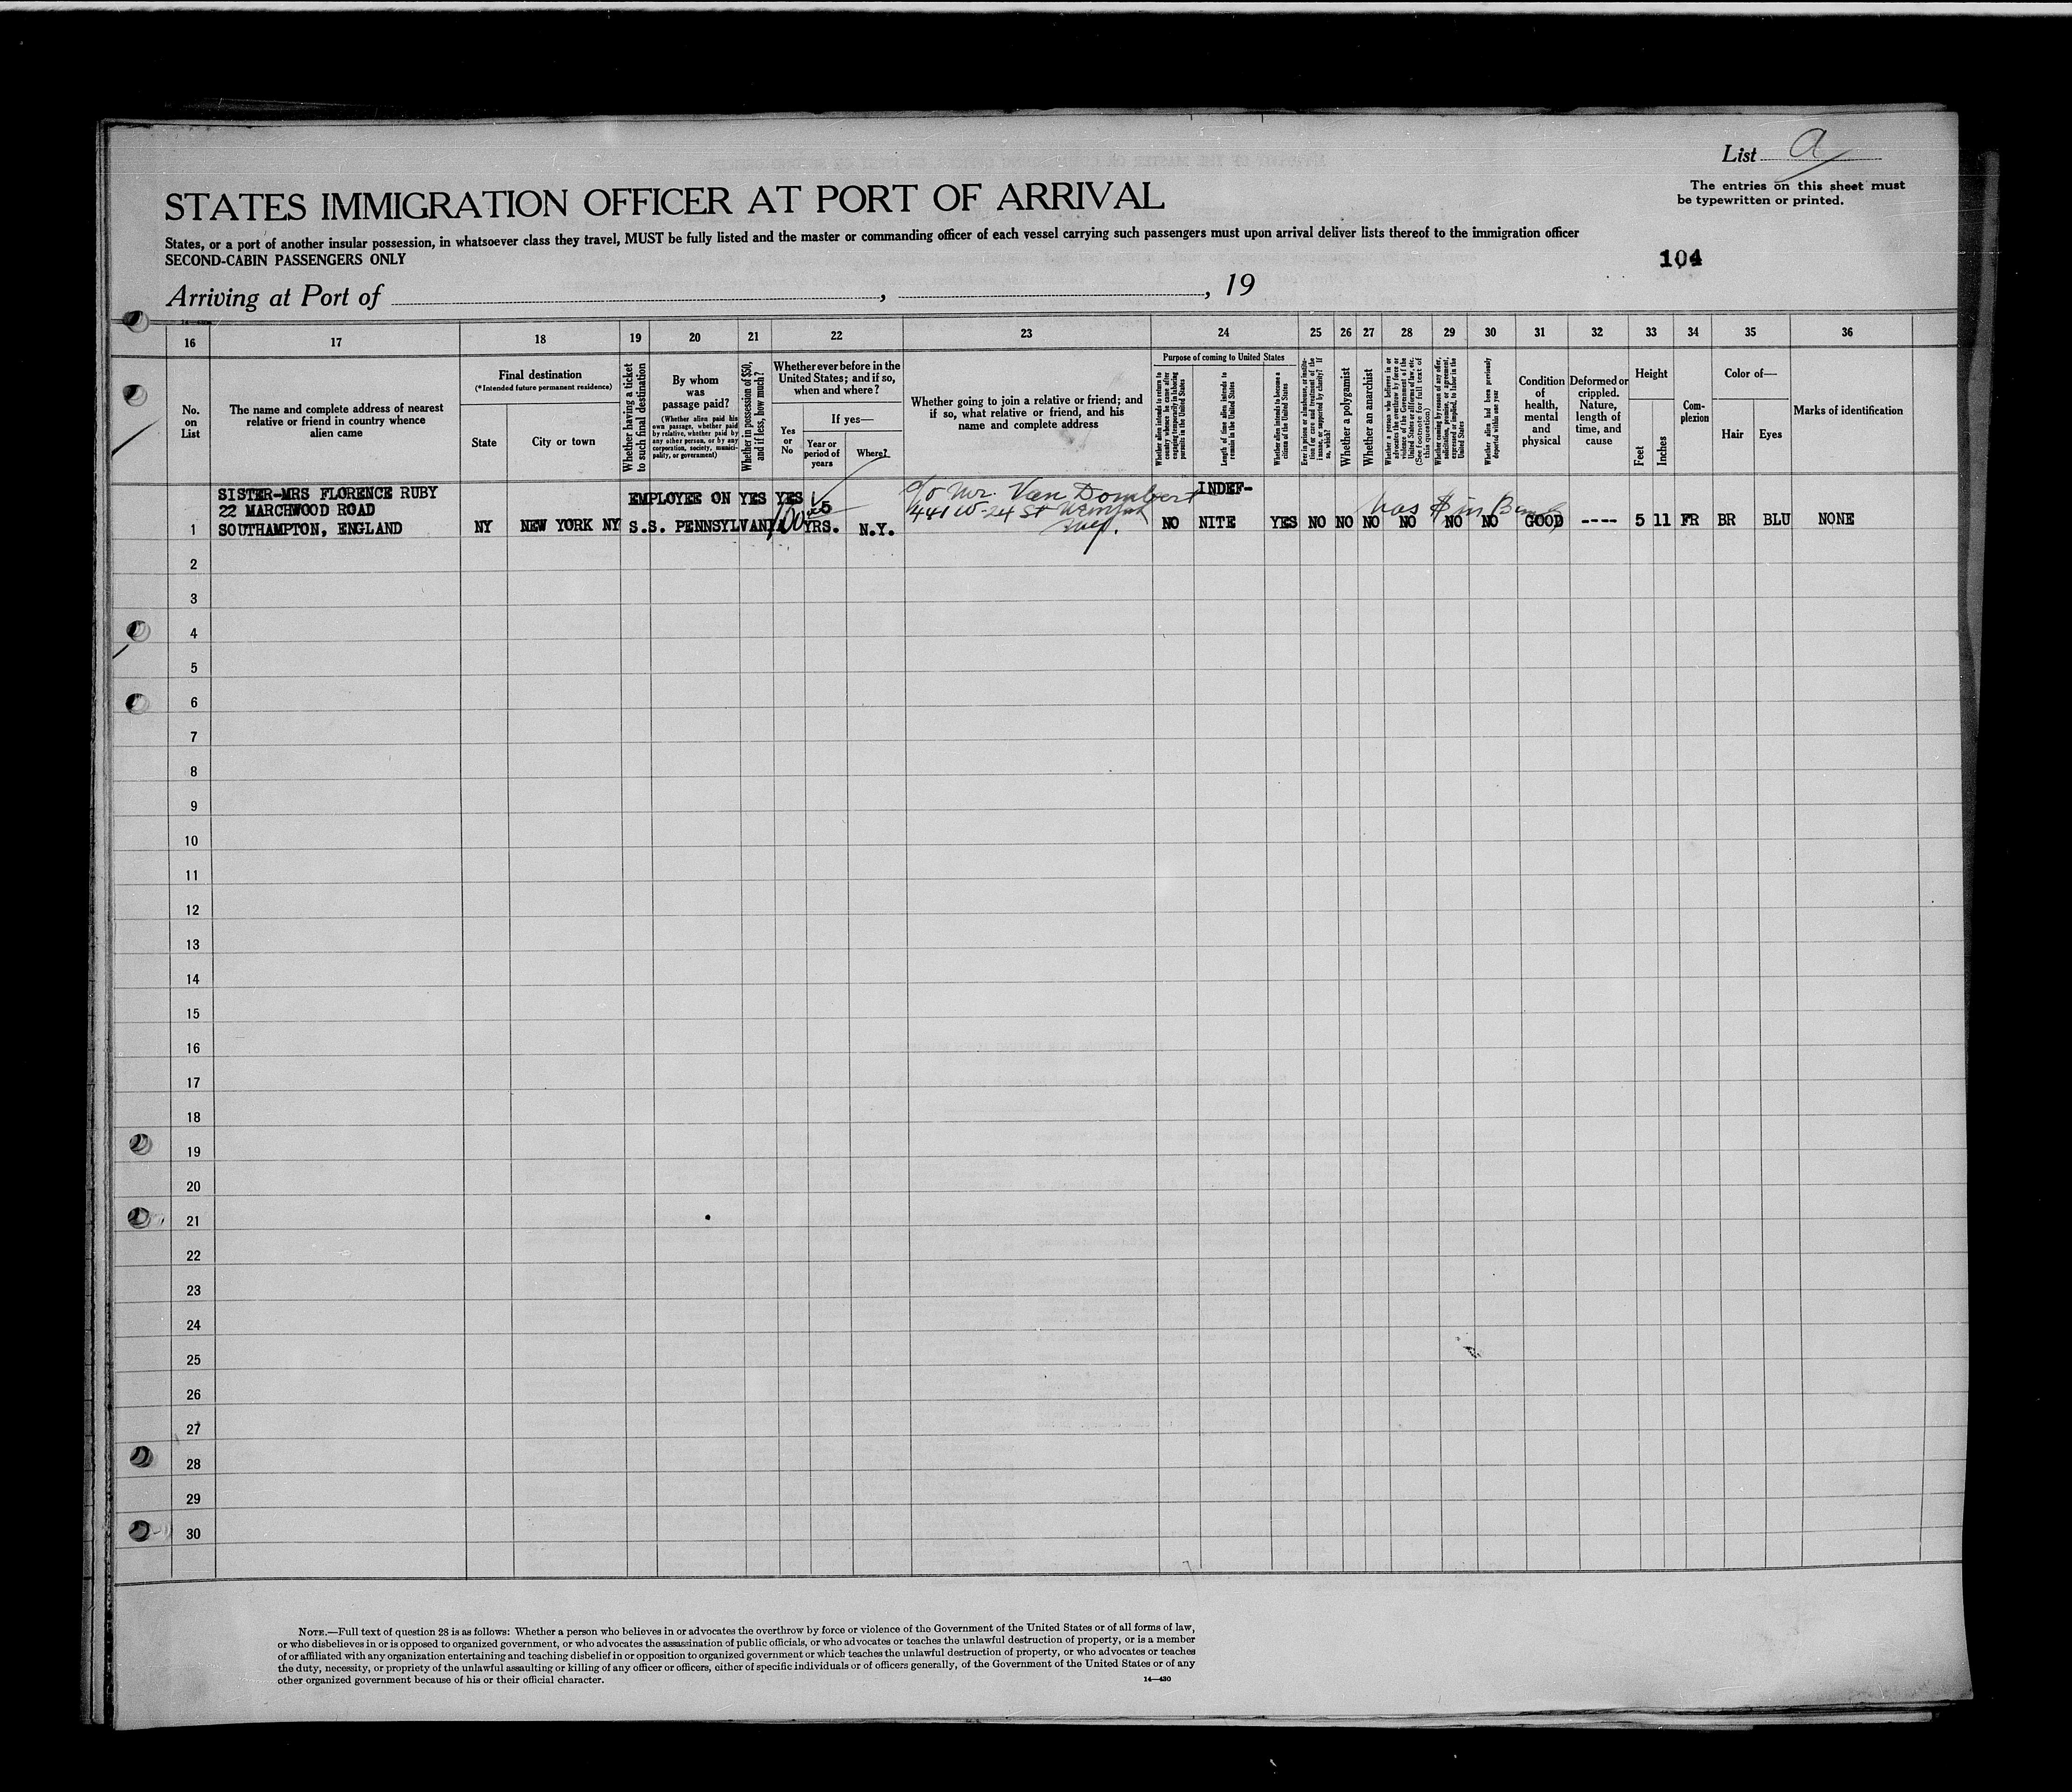 List a
The entries on this sheet must
be typewritten or printed.
STATES IMMIGRATION OFFICER AT PORT OF ARRIVAL
States, or a port of another insular possession, in whatsoever class they travel, MUST be fully listed and the master or commanding officer of each vessel carrying such passengers must upon arrival deliver lists thereof to the immigration officer
SECOND-CABIN PASSENGERS ONLY
104
Arriving at Port of , , 19
16 17 18 19 20 21 22 23 24 25 26 27 28 29 30 31 32 33 34 35 36
No.
on
List
The name and complete address of nearest
relative or friend in country whence
alien came
Final destination
(*Intended future permanent residence)
State
City or town
Whether having a ticket
to such final destination
By whom
was
passage paid?
(Whether alien paid his
own passage, whether paid
by relative, whether paid by
any other person, or by any
corporation, society, munici-
pality, or government)
Whether in possession of $50,
and if less, how much?
Whether ever before in the
United States; and if so,
when and where?
Yes
or
No
If yes—
Year or
period of
years
Where?
Whether going to join a relative or friend; and
if so, what relative or friend, and his
name and complete address
Purpose of coming to United States
Whether alien intends to return to
country whence he came after
engaging temporarily in laboring
pursuits in the United States
Length of time alien intends to
remain in the United States
Whether alien intends to become a
citizen of the United States
Ever in prison or almshouse, or institu-
tion for care and treatment of the
insane, or supported by charity? If
so, which?
Whether a polygamist
Whether an anarchist
Whether a person who believes in or
advocates the overthrow by force or
violence of the Government of the
United States or all forms of law, etc.
(See footnote for full text of
this question)
Whether coming by reason of any offer,
solicitation, promise, or agreement,
expressed or implied, to labor in the
United States
Whether alien had been previously
deported within one year
Condition
of
health,
mental
and
physical
Deformed or
crippled.
Nature,
length of
time, and
cause
Height
Feet
Inches
Com-
plexion
Color of—
Hair
Eyes
Marks of identification
SISTER-MRS FLORENCE RUBY
22 MARCHWOOD ROAD
SOUTHAMPTON, ENGLAND
1
NY
NEW YORK NY
EMPLOYEE ON
S.S. PENNSYLVANIA
YES
100
YES
5
YRS.
N.Y.
c/o Mr. Van Dombert
441 W 24 St
NO
INDEF-
NITE
YES NO NO NO NO NO NO
has $ in Bank
GOOD ---- 5 11 FR BR BLU NONE
2
3
4
5
6
7
8
9
10
11
12
13
14
15
16
17
18
19
20
21
22
23
24
25
26
27
28
29
30
NOTE.—Full text of question 28 is as follows: Whether a person who believes in or advocates the overthrow by force or violence of the Government of the United States or of all forms of law,
or who disbelieves in or is opposed to organized government, or who advocates the assassination of public officials, or who advocates or teaches the unlawful destruction of property, or is a member
of or affiliated with any organization entertaining and teaching disbelief in or opposition to organized government or which teaches the unlawful destruction of property, or who advocates or teaches
the duty, necessity, or propriety of the unlawful assaulting or killing of any officer or officers, either of specific individuals or of officers generally, of the Government of the United States or of any
other organized government because of his or their official character.
14—430